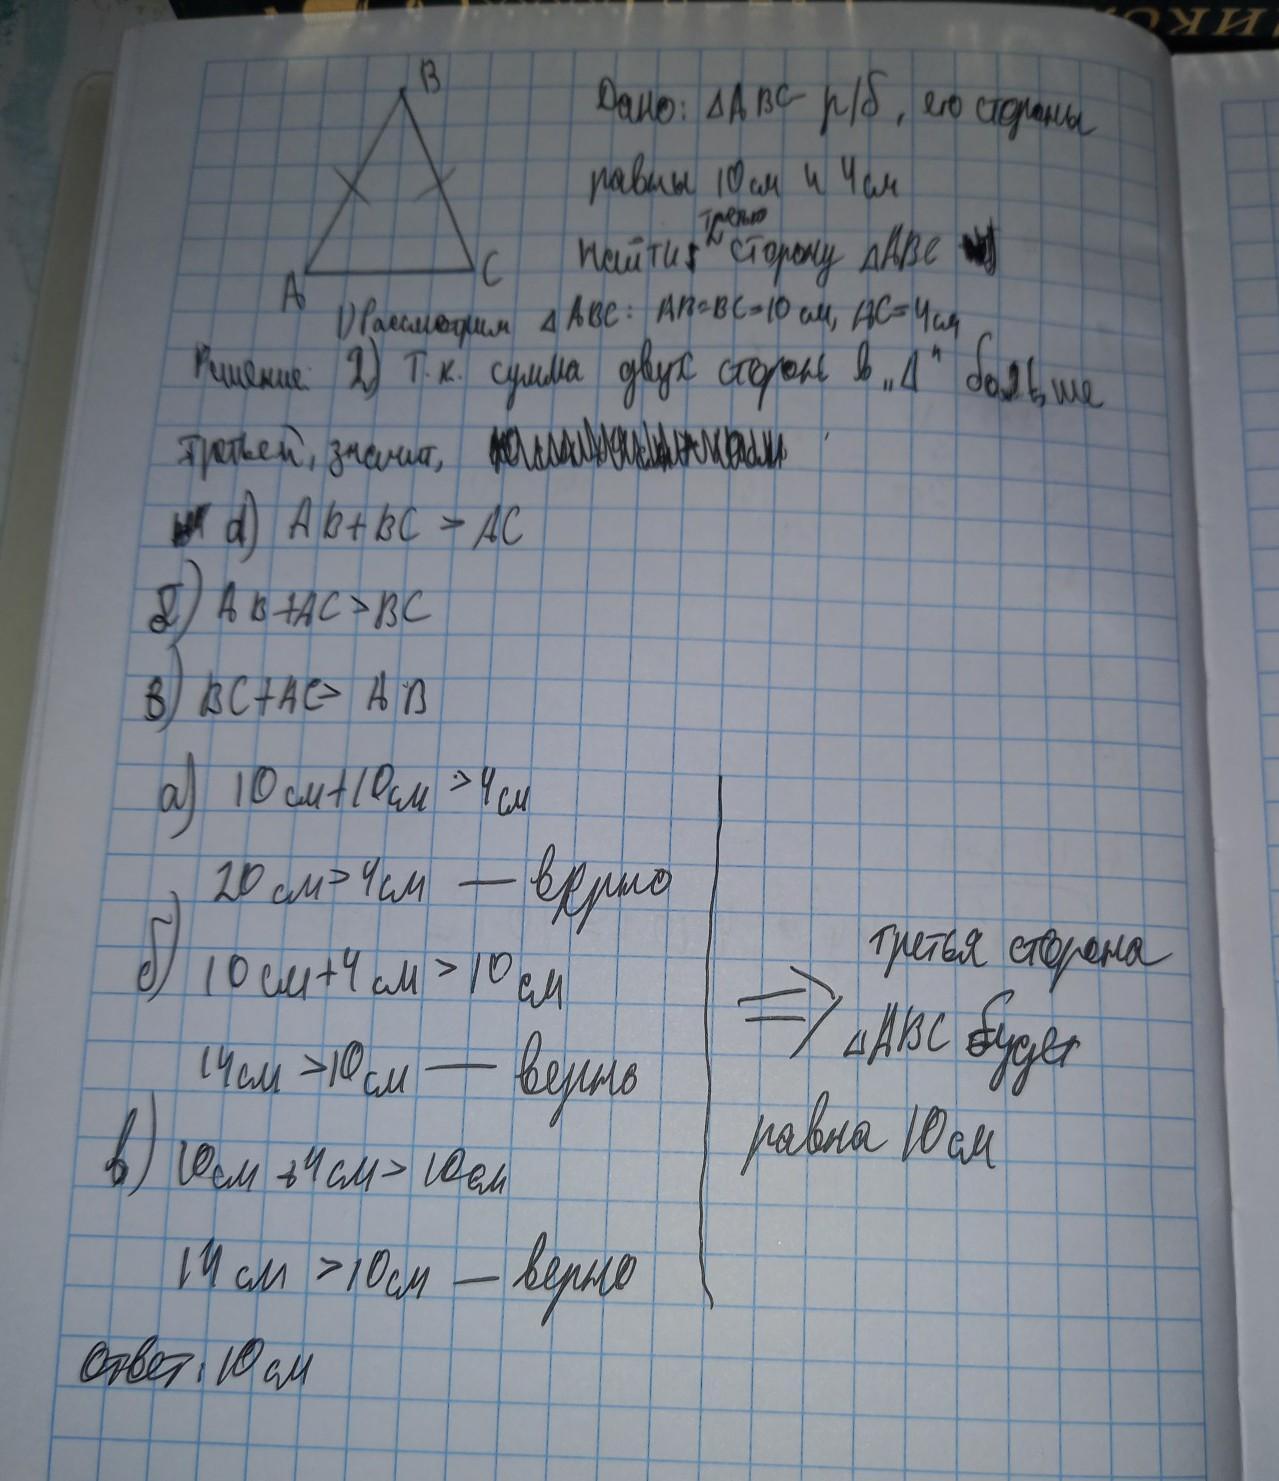 ИКОН
B
A
C
Дано: △ABC - р/б, его стороны
равны 10 см и 4 см
третью
Найти: сторону △ABC
1) Рассмотрим △ABC: AB=BC=10 см, AC=4 см
Решение: 2) Т.к. сумма двух сторон в „△" больше
третьей, значит,
а) AB+BC > AC
б) AB+AC>BC
в) BC+AC> AB
а) 10 см+10 см >4 см
20 см>4 см — верно
б) 10 см+4 см > 10 см
14 см >10 см — верно
в) 10 см +4 см> 10 см
14 см >10 см — верно
=> третья сторона
△ABC будет
равна 10 см
Ответ: 10 см